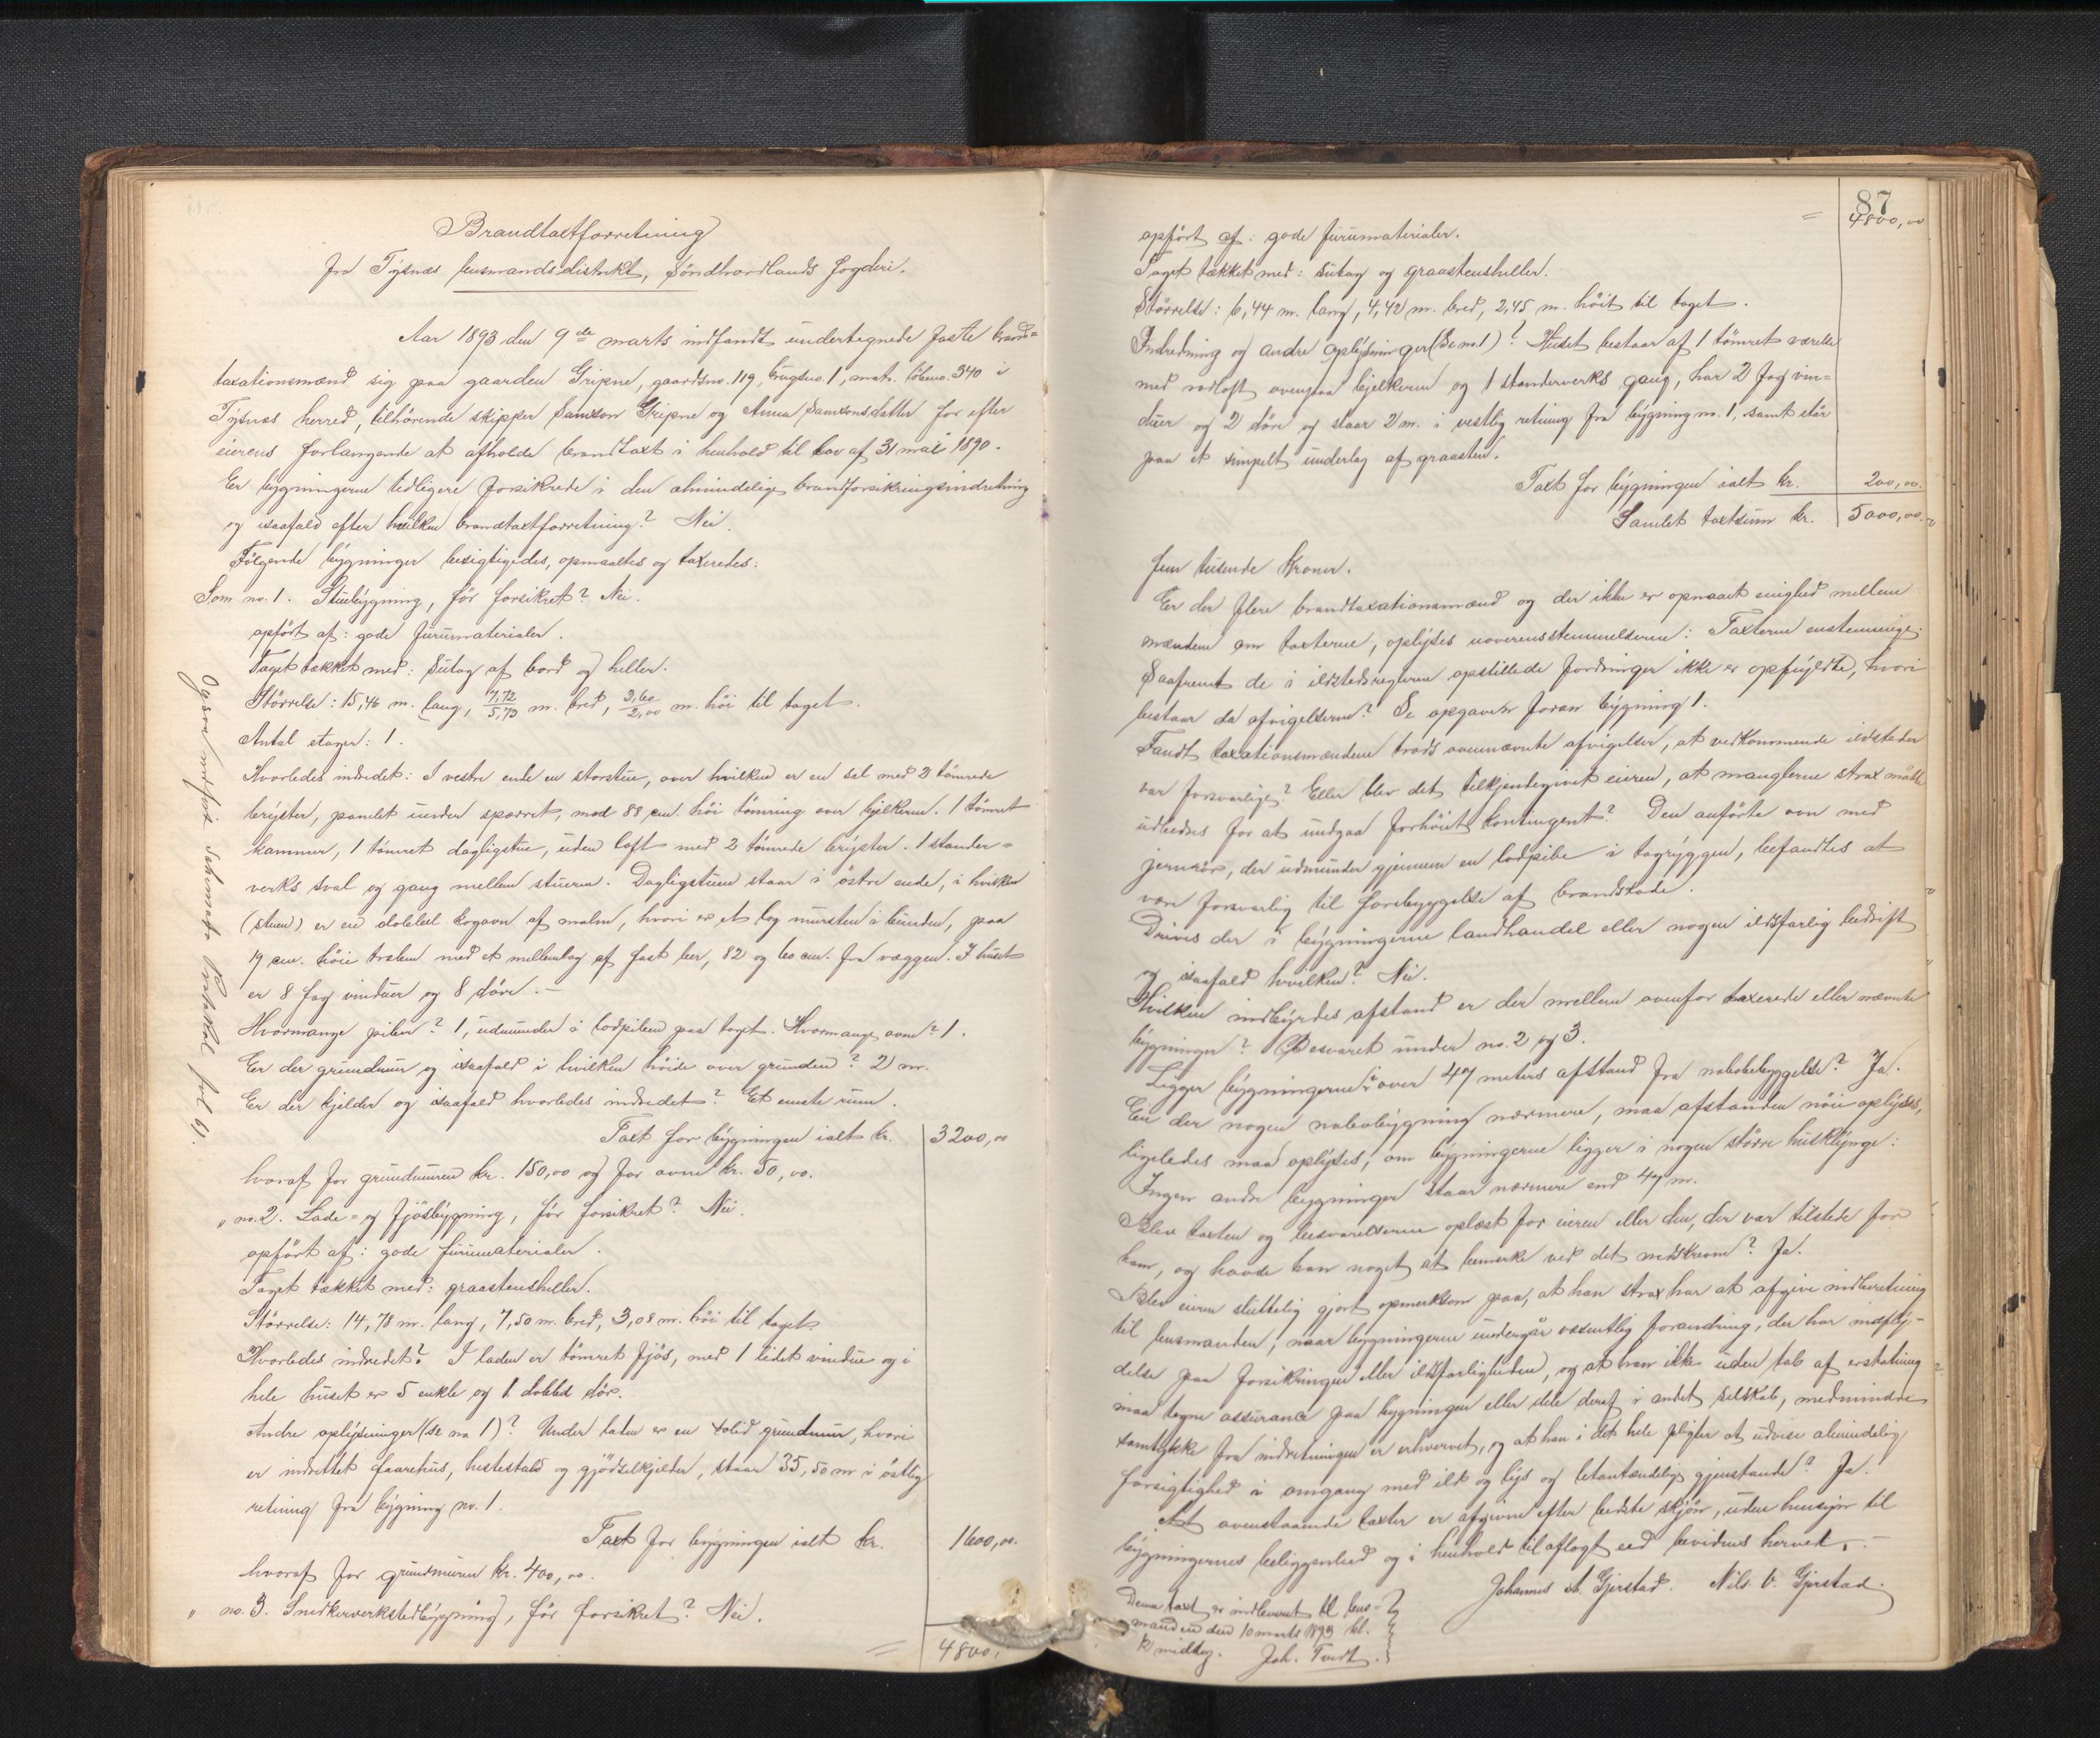 Brandtaxtforretning
fra Tysnæs lensmandsdistrikt, Söndhordlands fogderi.
Aar 1893 den 9de marts indfandt undertegnede faste brand=
taxationsmænd sig paa gaarden Gripne, gaardsno. 119, brugsno. 1, matr. löbeno. 340 i
Tysnæs herred, tilhörende skipper Samson Gripne og Anna Samsonsdatter for efter
eierens forlangende at afholde brandtaxt i henhold til lov af 31 mai 1890.
Er bygningerne tidligere forsikrede i den almindelige brandforsikringsindretning
og isaafald efter hvilken brandtaxtforretning? Nei.
Fölgende bygninger besigtigedes, opmaaltes og taxeredes:
Som no. 1. Stuebygning, för forsikret? Nei.
opfört af: gode furumaterialer.
Taget tækket med: Sutag af bord og heller.
Störrelse: 15,46 m. lang, 7,72/5,73 m. bred, 3,60/2,00 m. höi til taget.
Antal etager: 1.
Hvorledes indredet: I vestre ende en storstue, over hvilken er en sal med 2 tömrede
bryster, panelet under sparret, med 88 cm. höi tömring over bjelkerne. 1 tömret
kammer, 1 tömret dagligstue, uden loft med 2 tömrede bryster. 1 stander=
verks sval og gang mellem stuerne. Dagligstuen staar i östre ende, i hvilken
(stuen) er en dobbel kogovn af malm, hvori er et lag mursten i bunden, paa
19 cm. höie træben med et mellemlag af fast ler, 82 og 60 cm. fra væggen. I huset
er 8 fag vinduer og 8 döre. —
Hvormange piber? 1, udmunder i lodpiben paa taget. Hvormange ovne? 1.
Er der grundmur og isaafald i hvilken höide over grunden? 2 m.
Er der kjelder og isaafald hvorledes indredet? Et eneste rum.
Taxt for bygningen ialt kr. 3200,00
hvoraf for grundmuren kr. 150,00 og for ovne kr. 50,00.
" no. 2. Lade= og fjösbygning, för forsikret? Nei.
opfört af: gode furumaterialer.
Taget tækket med: graastensheller.
Störrelse: 14,78 m. lang, 7,50 m. bred, 3,08 m. höi til taget.
Hvorledes indredet? I laden er tömret fjös, med 1 lidet vindue og i
hele huset er 5 enkle og 1 dobbel dör.
Andre oplysninger (se no 1)? Under laden er en solid grundmur, hvori
er indrettet faarehus, hestestald og gjödselkjelder, staar 35,50 m i östlig
retning fra bygning no. 1.
Taxt for bygningen ialt kr. 1600,00.
hvoraf for grundmuren kr. 400,00.
" no. 3. Snedkerverkstedbygning, för forsikret? Nei.
= 4800,
Ogsaa indfört Protokol fol 61.
87
= 4800,00
opfört af: gode furumaterialer.
Taget tækket med: sutag og graastensheller.
Störrelse: 6,44 m. lang, 4,42 m. bred, 2,45 m. höit til taget.
Indredning og andre oplysninger (se no. 1)? Huset bestaar af 1 tömret værelse
med rodloft ovenpaa bjelkerne og 1 standerverks gang, har 2 fag vin=
duer og 2 döre og staar 2 m. i vestlig retning fra bygning no. 1, samt står
paa et simpelt underlag af graasten.
Taxt for bygningen ialt kr. 200,00.
Samlet taxtsum kr. 5000,00.
fem tusende Kroner.
Er der flere brandtaxationsmænd og der ikke er opnaaet enighed mellem
mændene om taxterne, oplyses uoverensstemmelserne: Taxterne enstemmige.
Saafremt de i ildstedsreglerne opstillede fordringer ikke er opfyldte, hvori
bestaar da afvigelserne? Se opgaven foran bygning 1.
Fandt taxationsmændene trods ovennævnte afvigelser, at vedkommende ildsteder
var forsvarlige? Eller blev det tilkjendegivet eieren, at manglerne strax måtte
udbedres for at undgaa forhöiet kontingent? Den anförte ovn med
jernrör, der udmunder gjennem en lodpibe i tagryggen, befandtes at
være forsvarlig til forebyggelse af brandskade.
Drives der i bygningerne landhandel eller nogen ildsfarlig bedrift
og isaafald hvilken? Nei.
Hvilken indbyrdes afstand er der mellem ovenfor taxerede eller nævnte
bygninger? Besvaret under no. 2 og 3.
Ligger bygningerne i over 47 meters afstand fra nabobebyggelse? Ja.
Er der nogen nabobygning nærmere, maa afstanden nöie oplyses,
ligeledes maa oplyses, om bygningerne ligger i nogen större husklynge:
Ingen andre bygninger staar nærmere end 47 m.
Blev taxten og besvarelserne oplæst for eieren eller den, der var tilstede for
ham, og havde han noget at bemerke ved det nedskrevne? Ja.
Blev eieren sluttelig gjort opmerksom paa, at han strax har at afgive indberetning
til lensmanden, naar bygningerne undergår væsentlig forandring, der har indfly-
delse paa forsikringen eller ildsfarligheden, og at han ikke uden tab af erstatning
maa tegne assurance paa bygningen eller dele deraf i andet selskab, medmindre
samtykke fra indretningen er erhvervet, og at han i det hele pligter at udvise almindelig
forsigtighed i omgang med ild og lys og letantændelige gjenstande? Ja.
At ovenstaaende taxter er afgivne efter bedste skjön, uden hensyn til
bygningernes beliggenhed og i henhold til aflagt eed bevidnes herved. —
Johannes A. Gjerstad. Nils O. Gjerstad.
Denne taxt er indleveret til lens-
manden den 10 marts 1893 kl.
12 middag. Joh. Tveit.